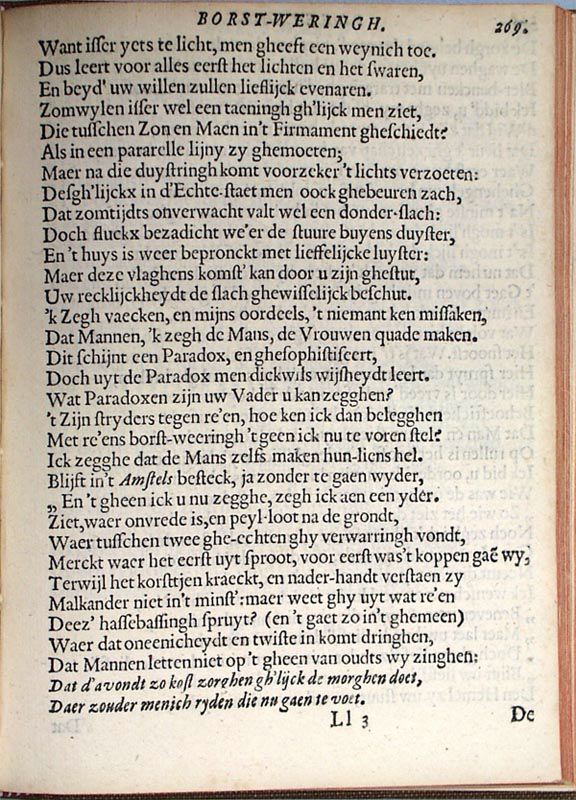 BORST-WERINGH. 269.
Want isser yets te licht, men gheeft een weynich toe.
Dus leert voor alles eerst het lichten en het swaren,
En beyd' uw willen zullen lieflijck evenaren.
Zomwylen isser wel een taeningh gh'lijck men ziet,
Die tusschen Zon en Maen in't Firmament gheschiedt?
Als in een pararelle lijny zy ghemoeten;
Maer na die duystringh komt voorzeker 't lichts verzoeten:
Desgh'lijckx in d'Echte-staet men oock ghebeuren zach,
Dat zomtijdts onverwacht valt wel een donder-slach:
Doch fluckx bezadicht we'er de stuure buyens duyster,
En 't huys is weer bepronckt met lieffelijcke luyster:
Maer deze vlaghens komst' kan door u zijn ghestut,
Uw recklijckheydt de slach ghewisselijck beschut.
'k Zegh vaecken, en mijns oordeels, 't niemant ken missaken,
Dat Mannen, 'k zegh de Mans, de Vrouwen quade maken.
Dit schijnt een Paradox, en ghesophistiseert,
Doch uyt de Paradox men dickwils wijsheydt leert.
Wat Paradoxen zijn uw Vader u kan zegghen?
't Zijn stryders tegen re'en, hoe ken ick dan belegghen
Met re'ens borst-weeringh 't geen ick nu te voren stel?
Ick zegghe dat de Mans zelfs maken hun-liens hel.
Blijft in't Amstels besteck, ja zonder te gaen wyder,
„ En 't gheen ick u nu zegghe, zegh ick aen een yder.
Ziet, waer onvrede is, en peyl-loot na de grondt,
Waer tusschen twee ghe-echten ghy verwarringh vondt,
Merckt waer het eerst uyt sproot, voor eerst was't koppen gaē wy,
Terwijl het korstjen kraeckt, en nader-handt verstaen zy
Malkander niet in't minst': maer weet ghy uyt wat re'en
Deez' hassebassingh spruyt? (en 't gaet zo in't ghemeen)
Waer dat oneenicheydt en twiste in komt dringhen,
Dat Mannen letten niet op 't gheen van oudts wy zinghen:
Dat d'avondt zo kost zorghen gh'lijck de morghen doet,
Daer zouder menich ryden die nu gaen te voet.
Ll 3 De